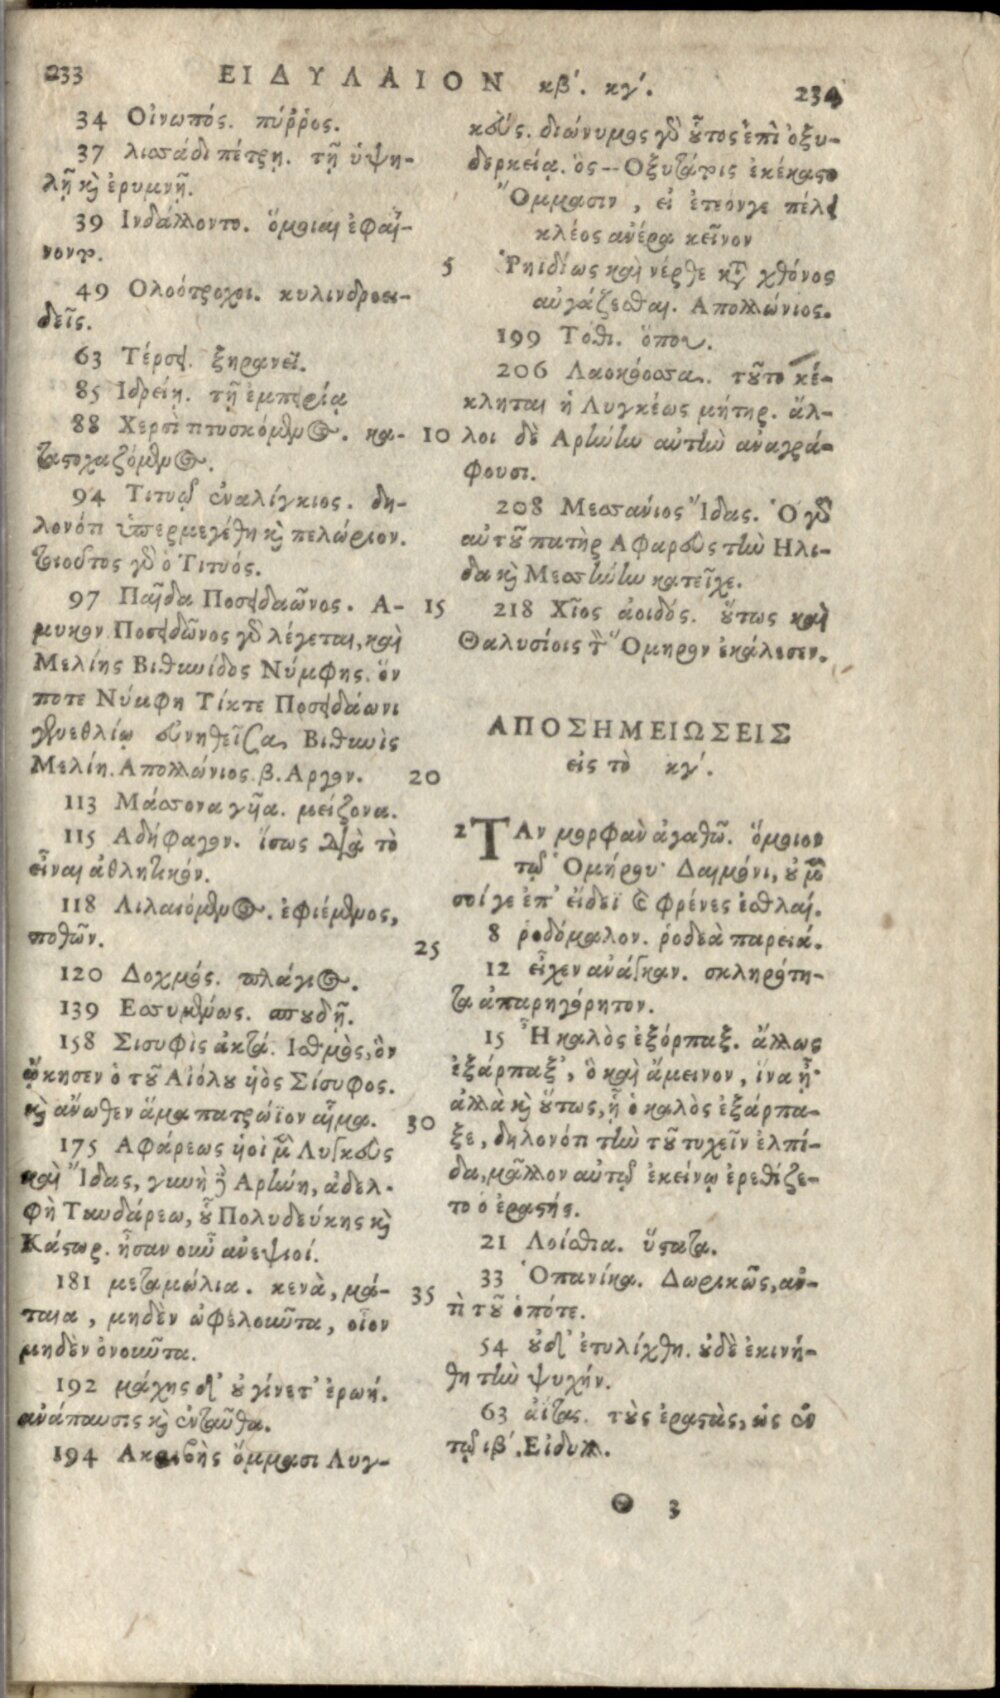 233 ΕΙΔΥΛΛΙΟΝ κβ΄. κγ΄. 234
34 Οἰνωπός. πύῤῥος.
37 λισσάδι πέτρῃ. τῇ ὑψη-
λῇ κὶ ἐρυμνῇ.
39 Ινδάλλοντο. ὅμοιαι ἐφαί-
νοντο.
49 Ολοότροχοι. κυλινδροει-
δεῖς.
63 Τέρσει. ξηρανεῖ.
85 Ιδρείῃ. τῇ ἐμπειρίᾳ
88 Χερσὶ πτυσκόμενος. κα-
ταστοχαζόμενος.
94 Τιτυῷ ἐναλίγκιος. δη-
λονότι ὑπερμεγέθη κὶ πελώριον.
τοιοῦτος γὸ ὁ Τιτυός.
97 Παῖδα Ποσειδαῶνος. Α-
μυκον Ποσειδῶνος γὸ λέγεται, καὶ
Μελίης Βιθυνίδος Νύμφης. ὅν
ποτε Νύμφη Τίκτε Ποσειδάωνι
γενεθλίῳ συνηθεῖσα Βιθυνὶς
Μελίη. Απολλώνιος. β. Αργον.
113 Μάσσονα γῆα. μείζονα.
115 Αδήφαγον. ἴσως διὰ τὸ
εἶναι ἀθλητικόν.
118 Λιλαιόμενος. ἐφιέμενος,
ποθῶν.
120 Δοχμός. πλάγιος.
139 Εσσυμένως. σπουδῇ.
158 Σισυφὶς ἀκτά. Ισθμὸς, ὃν
ᾤκησεν ὁ τοῦ Αἰόλου υἱὸς Σίσυφος.
κὶ ἄνωθεν ἅμα πατρώϊον αἷμα.
175 Αφάρεως υἱοὶ μὲν Λυγκεὺς
καὶ Ἴδας, γυνὴ δὲ Αρήνη, ἀδελ-
φὴ Τυνδάρεω, οὗ Πολυδεύκης κὶ
Κάστωρ. ἦσαν οὖν ἀνεψιοί.
181 μεταμώλια. κενὰ, μά-
ταια, μηδὲν ὠφελοῦντα, οἷον
μηδὲν ὀνοῦντα.
192 μάχης δ' οὐ γίνετ' ἐρωή.
ἀνάπαυσις κὶ ἐνταῦθα.
194 Ακριβὴς ὄμμασι Λυγ-
κεύς. διώνυμος γὸ οὗτος ἐπὶ ὀξυ-
δερκείᾳ. ὃς -- Οξυτάτοις ἐκέκαστο
Ὄμμασιν, εἰ ἐτεόνγε πέλει
κλέος ἀνέρα κεῖνον
5 Ῥηϊδίως καὶ νέρθε κατὰ χθόνος
αὐγάζεσθαι. Απολλώνιος.
199 Τόθι. ὅπου.
206 Λαοκόοσσα. τοῦτο κέ-
κληται ἡ Λυγκέως μήτηρ. ἄλ-
10 λοι δὲ Αρήνην αὐτὴν ἀναγρά-
φουσι.
208 Μεσσάνιος Ἴδας. Ὁ γὸ
αὐτοῦ πατὴρ Αφαρεὺς τὴν Ηλι-
δα κὶ Μεσσήνην κατεῖχε.
15 218 Χῖος ἀοιδός. οὕτως καὶ
Θαλυσίοις τὸν Ὅμηρον ἐκάλεσεν.
ΑΠΟΣΗΜΕΙΩΣΕΙΣ
εἰς τὸ κγ΄.
20
2 ΤΑν μορφὰν ἀγαθῶ. ὅμοιον
τῷ Ὁμήρου· Δαιμόνι, οὐ μὲν
σοί γε ἐπ' εἴδεϊ καὶ φρένες ἐσθλαί.
25 8 ῥοδόμαλον. ῥοδεὰ παρειά.
12 εἶχεν ἀνάγκαν. σκληρότη-
τα ἀπαρηγόρητον.
15 Ἦ καλὸς ἐξόρπαξ. ἄλλως
ἐξάρπαξ', ὃ καὶ ἄμεινον, ἵνα ᾖ·
ἀλλὰ κὶ οὕτως, ᾗ ὁ καλὸς ἐξάρπα-
30 ξε, δηλονότι τὴν τοῦ τυχεῖν ἐλπί-
δα, μᾶλλον αὐτῷ ἐκείνῳ ἐρεθίζε-
το ὁ ἐραστής.
21 Λοίσθια. ὕστατα.
35 33 Ὁπανίκα. Δωρικῶς, ἀν-
τὶ τοῦ ὁπότε.
54 οὐδ' ἐτυλίχθη. οὐδὲ ἐκινή-
θη τὴν ψυχήν.
63 ἀΐτας. τοὺς ἐραστὰς, ὡς ἐν
τῷ ιβ΄. Εἰδυλ.
Θ 3